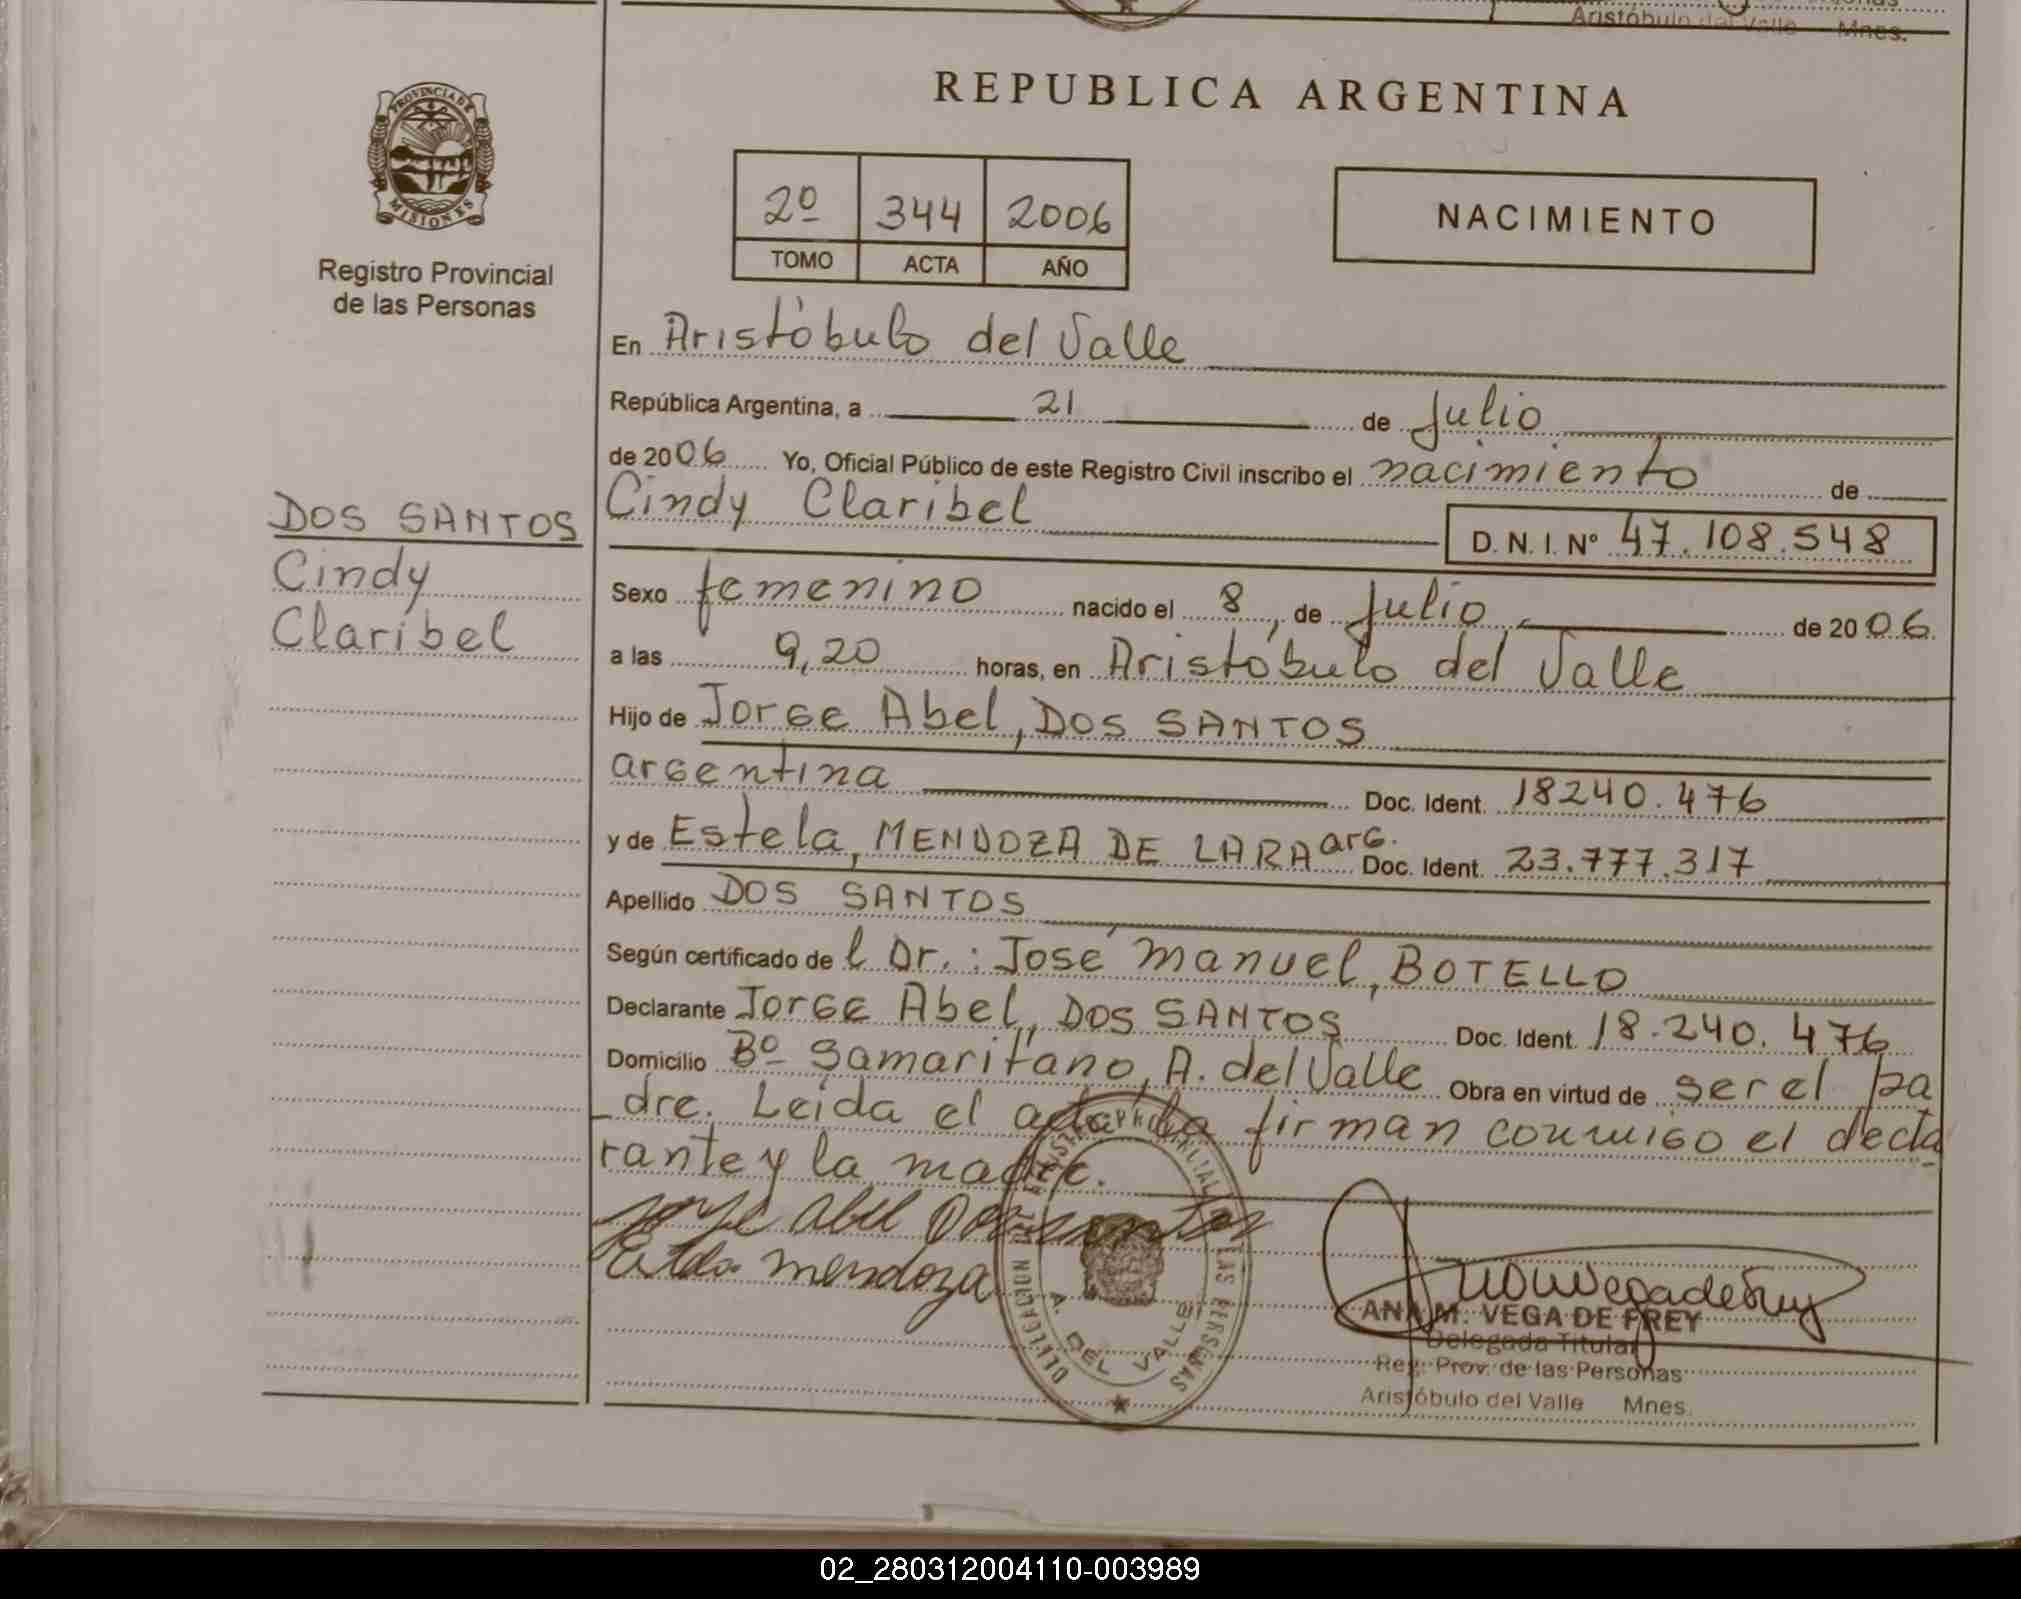 Aristóbulo del Valle Mnes.
PROVINCIA DE
MISIONES
Registro Provincial
de las Personas
REPUBLICA ARGENTINA
2º 344 2006
TOMO ACTA AÑO
NACIMIENTO
En Aristóbulo del Valle
República Argentina, a 21 de Julio
de 2006 Yo, Oficial Público de este Registro Civil inscribo el nacimiento de
Cindy Claribel
D. N. I. Nº 47.108.548
DOS SANTOS
Cindy
Claribel
Sexo femenino nacido el 8, de Julio de 2006.
a las 9,20 horas, en Aristóbulo del Valle
Hijo de Jorge Abel, DOS SANTOS
argentina Doc. Ident. 18240.476
y de Estela, MENDOZA DE LARA arg. Doc. Ident. 23.777.317
Apellido DOS SANTOS
Según certificado de l Dr.: José Manuel, BOTELLO
Declarante Jorge Abel, DOS SANTOS Doc. Ident. 18.240.476
Domicilio Bº Samaritano, A. del Valle Obra en virtud de ser el pa
dre. Leída el acta la firman conmigo el decla
rante y la madre.
Jorge Abel Dos Santos
Mendoza
DELEGACION REGISTRO PROVINCIAL DE LAS PERSONAS
A. DEL VALLE
ANA M. VEGA DE FREY
Delegada Titular
Reg. Prov. de las Personas
Aristóbulo del Valle Mnes.
02_280312004110-003989